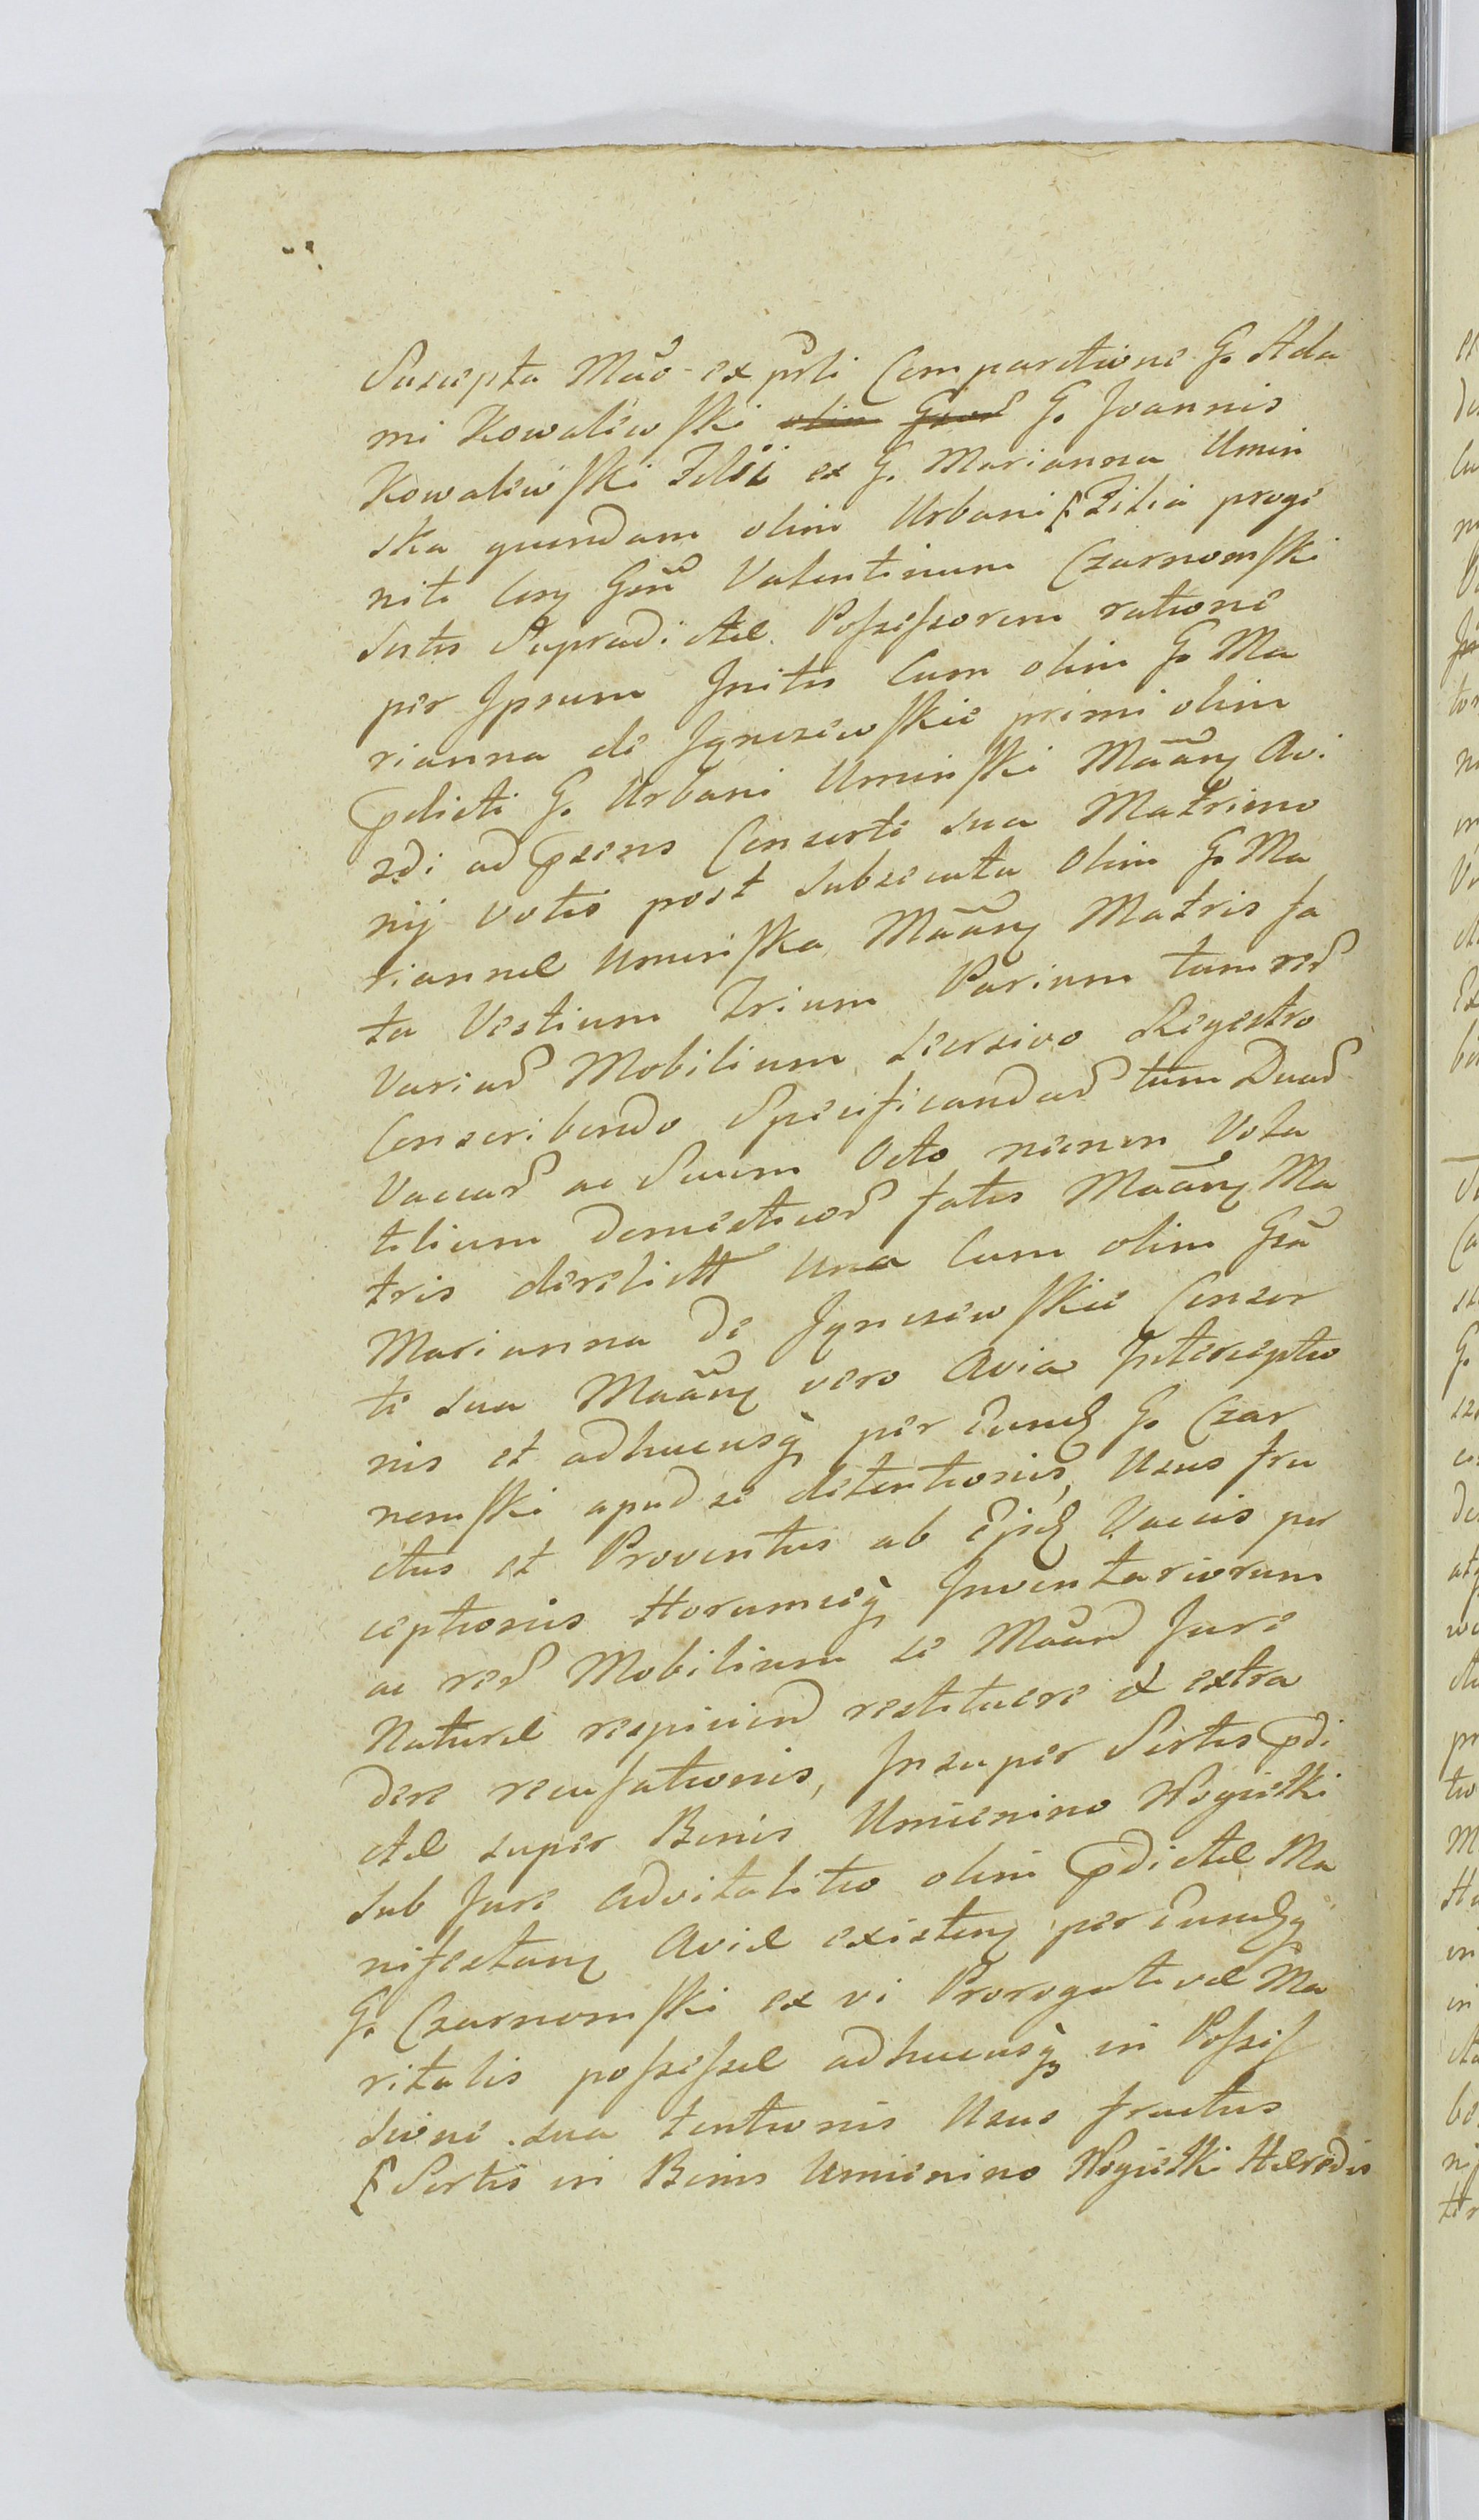 Suscepta Mão ex prsti Comparitione G. Ada
mi Kowalewski olim G. Joannis
Kowalewski Filii ex G. Marianna Umin
ska quendam olim Urbani Filia proge
niti Gsũ Valentinum Czarnomski
Sortis Supradictae Possessorem ratione
per Ipsum Initis Cum olim G. Ma
rianna de Jgneszewskie primi olim
pdicti G. Urbani Uminski Mãanẽ Avi
2di ad psens Consorte sua Matrimo
nij votis post subsecuta Olim G. Ma
riannae Uminska Mãanẽ Matris fa
ta Vestium Trium Parium tum rer
Variar Mobilium seorsivo Regestro
Conscribendo Specificandar tum Duar
Vaccar ac Suum Octo necnon Vola
tilium domesticor fatis Mãanẽ Ma
tris derelictt Una Cum olim Gsã
Marianna de Jgneszewskie Consor
te sua Mãanẽ vero Avia Interceptio
nis et adhucusq per Eund G. Czar
nomski apud se detentionis, Usus fru
ctus et Proventus ab Ejsd Vaccis per
ceptionis Horumceq Inventariorum
ac rer Mobilium se Mãan Jure
Naturae respicien restituere et extra
dere recusationis, Insuper Sortis pdi
ctae super Bonis Umienino Wogieski
sub Jure Advitalitio olim pdictae Ma
nifestanẽ Aviae existenẽ per Eundq
G. Czarnomski ex vi Prorogativae Ma
ritalis possessae adhucusq in Posses
sione sua tentionis Usus fructus
Sortis in Bonis Umienino Wogieski Haeredis